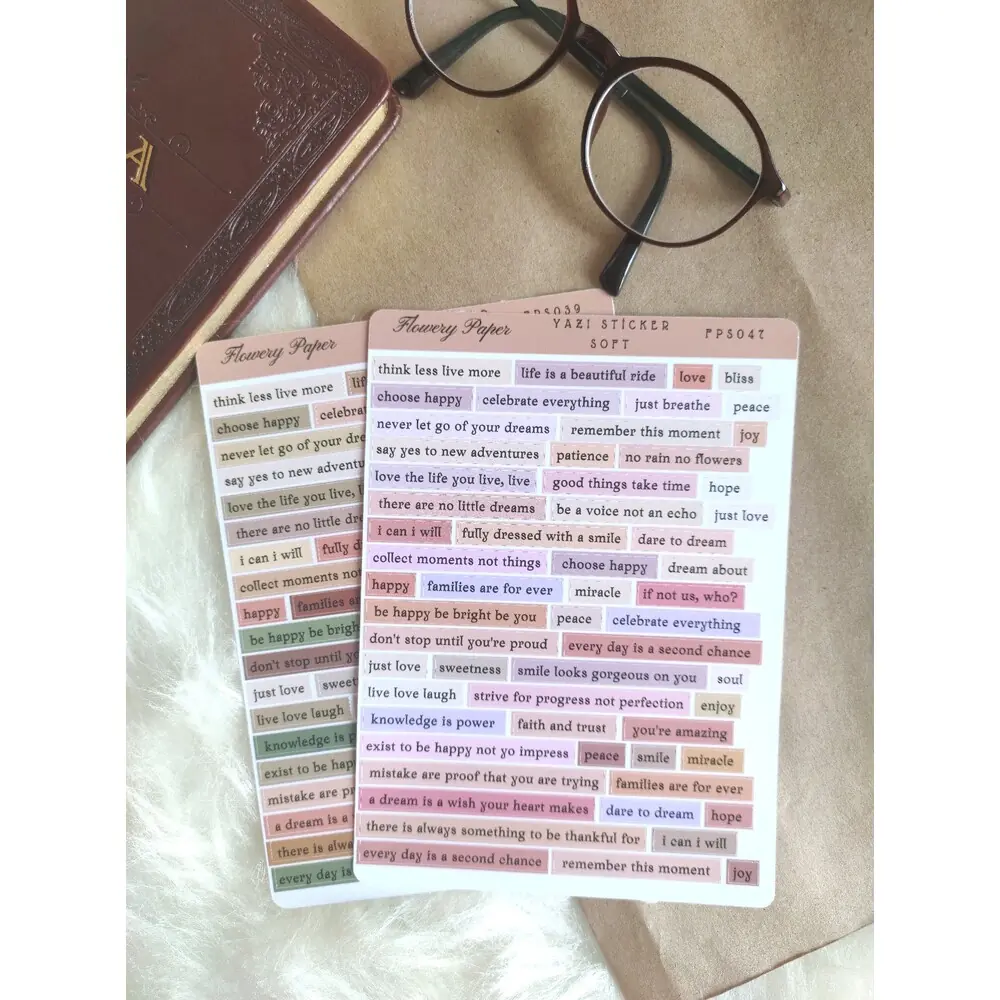 A
Flowery Paper
FPS039
think less live more
choose happy celebrat
never let go of your dre
say yes to new adventu
love the life you live, l
there are no little dre
i can i will fully d
collect moments not
happy families a
be happy be brigh
don't stop until yo
just love sweet
live love laugh
knowledge is p
exist to be hap
mistake are pr
a dream is a
there is alwa
every day is
Flowery Paper YAZI STİCKER FPS047
SOFT
think less live more life is a beautiful ride love bliss
choose happy celebrate everything just breathe peace
never let go of your dreams remember this moment joy
say yes to new adventures patience no rain no flowers
love the life you live, live good things take time hope
there are no little dreams be a voice not an echo just love
i can i will fully dressed with a smile dare to dream
collect moments not things choose happy dream about
happy families are for ever miracle if not us, who?
be happy be bright be you peace celebrate everything
don't stop until you're proud every day is a second chance
just love sweetness smile looks gorgeous on you soul
live love laugh strive for progress not perfection enjoy
knowledge is power faith and trust you're amazing
exist to be happy not yo impress peace smile miracle
mistake are proof that you are trying families are for ever
a dream is a wish your heart makes dare to dream hope
there is always something to be thankful for i can i will
every day is a second chance remember this moment joy